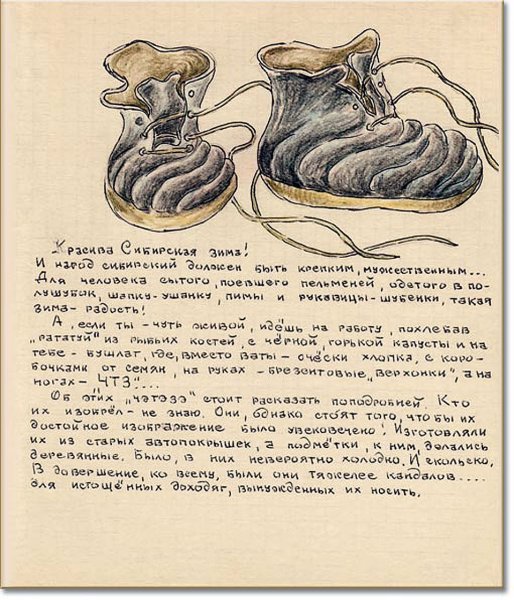 Красива Сибирская зима!
И народ сибирский должен быть крепким, мужественным...
Для человека сытого, поевшего пельменей, одетого в по-
лушубок, шапку-ушанку, пимы и рукавицы-шубенки, такая
зима - радость!
А, если ты - чуть живой, идёшь на работу, похлебав
„рататуй" из рыбьих костей, с чёрной, горькой капусты и на
тебе - бушлат, где, вместо ваты - очёски хлопка, с коро-
бочками от семян, на руках - брезентовые „верхонки", а на
ногах - „ЧТЗ"...
Об этих „чэтэзэ" стоит расказать поподробней. Кто
их изобрёл - не знаю. Они, однако стоят того, что бы их
достойное изображение было увековечено! Изготовляли
их из старых автопокрышек, а подмётки, к ним, делались
деревянные. Было, в них невероятно холодно. И скользко.
В довершение, ко всему, были они тяжелее кандалов....
для истощённых доходяг, вынужденных их носить.